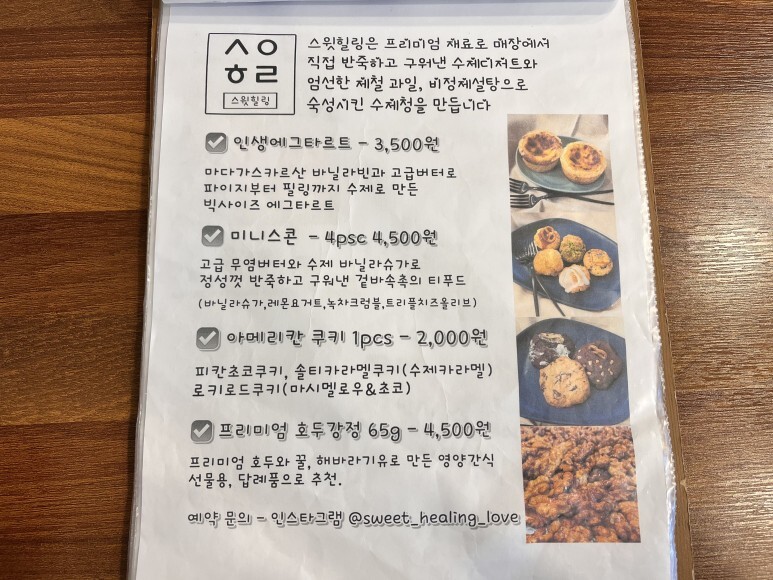 ㅅㅇ
ㅎㄹ
스윗힐링
스윗힐링은 프리미엄 재료로 매장에서
직접 반죽하고 구워낸 수제디저트와
엄선한 제철 과일, 비정제설탕으로
숙성시킨 수제청을 만듭니다
인생에그타르트 - 3,500원
마다가스카르산 바닐라빈과 고급버터로
파이지부터 필링까지 수제로 만든
빅사이즈 에그타르트
미니스콘 - 4psc 4,500원
고급 무염버터와 수제 바닐라슈가로
정성껏 반죽하고 구워낸 겉바속촉의 티푸드
(바닐라슈가,레몬요거트,녹차크럼블,트리플치즈올리브)
아메리칸 쿠키 1pcs - 2,000원
피칸초코쿠키, 솔티카라멜쿠키(수제카라멜)
로키로드쿠키(마시멜로우&초코)
프리미엄 호두강정 65g - 4,500원
프리미엄 호두와 꿀, 해바라기유로 만든 영양간식
선물용, 답례품으로 추천.
예약 문의 - 인스타그램 @sweet_healing_love